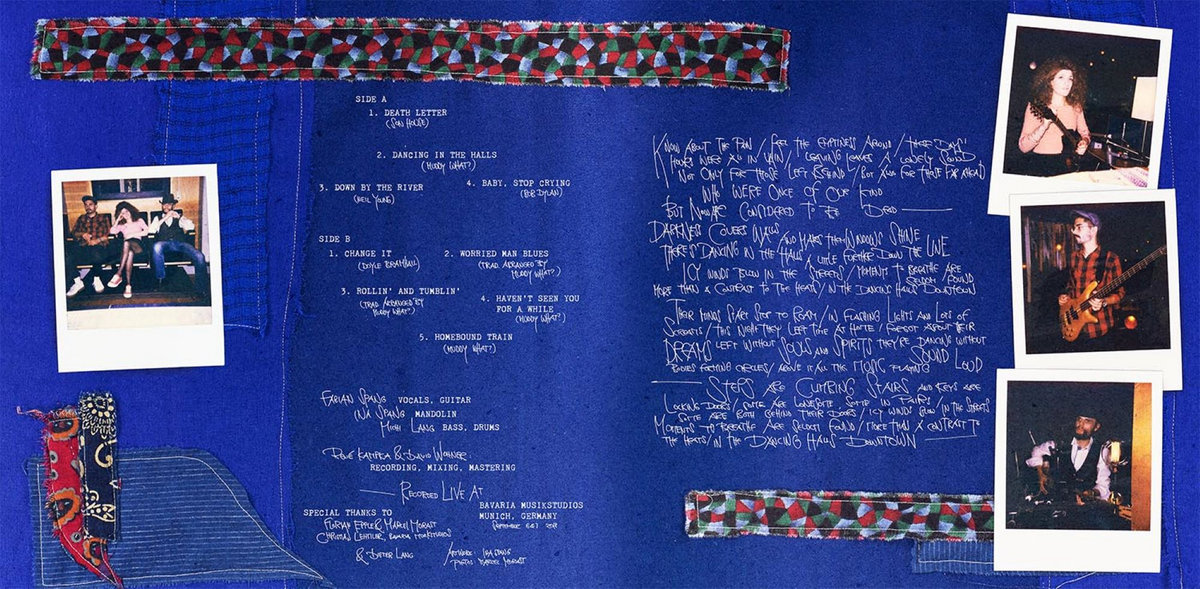 SIDE A
1. DEATH LETTER
(SON HOUSE)
2. DANCING IN THE HALLS
(MUDDY WHAT?)
3. DOWN BY THE RIVER
(NEIL YOUNG)
4. BABY, STOP CRYING
(BOB DYLAN)
SIDE B
1. CHANGE IT
(DOYLE BRAMHALL)
2. WORRIED MAN BLUES
(TRAD. ARRANGED BY
MUDDY WHAT?)
3. ROLLIN' AND TUMBLIN'
(TRAD. ARRANGED BY
MUDDY WHAT?)
4. HAVEN'T SEEN YOU
FOR A WHILE
(MUDDY WHAT?)
5. HOMEBOUND TRAIN
(MUDDY WHAT?)
FABIAN SPANG VOCALS, GUITAR
INA SPANG MANDOLIN
MICHI LANG BASS, DRUMS
& DAVID WÖHNER
RECORDING, MIXING, MASTERING
RECORDED LIVE AT
BAVARIA MUSIKSTUDIOS
MUNICH, GERMANY
SEPTEMBER
SPECIAL THANKS TO
FLORIAN EPPLE & MARCEL
CHRISTIAN BAVARIA MUSIKSTUDIOS
& DIETER LANG
ARTWORK: INA SPANG
PHOTOS: MARCEL
KNOW ABOUT THE PAIN / FEEL THE EMPTINESS AROUND / THESE DAYS
HOURS WERE ALL IN VAIN / LEAVING LEAVES A LONELY SOUND
NOT ONLY FOR THOSE LEFT BEHIND / BUT ALSO FOR THOSE FAR AHEAD
WHO WERE ONCE OF OUR KIND
BUT NOW ARE CONSIDERED TO BE DEAD
DARKNESS COVERS WALLS AND MAKES THEM WINDOWS SHINE
THERE'S DANCING IN THE HALLS A LITTLE FURTHER DOWN THE LINE
ICY WINDS BLOW IN THE STREETS / MOMENTS TO BREATHE ARE SELDOM FOUND
MORE THAN A CONTRAST TO THE HEATS / IN THE DANCING HALLS DOWNTOWN
THEIR MINDS START TO ROAM / IN FLASHING LIGHTS AND LOTS OF
/ THIS NIGHT THEY LEFT TIME AT HOME / FORGOT ABOUT THEIR
DREAMS LEFT WITHOUT SOULS AND SPIRITS THEY'RE DANCING WITHOUT
BODIES FORMING CIRCLES / ABOVE IT ALL THE MUSIC PLAYING SOUND LOUD
STEPS ARE CLIMBING STAIRS AND KEYS ARE
LOCKING DOORS / SOME ARE LONESOME SOME IN PAIRS /
SOME ARE BOTH BEHIND THEIR DOORS / ICY WINDS BLOW / IN THE STREETS
MOMENTS TO BREATHE ARE SELDOM FOUND / MORE THAN A CONTRAST TO
THE HEATS / IN THE DANCING HALLS DOWNTOWN